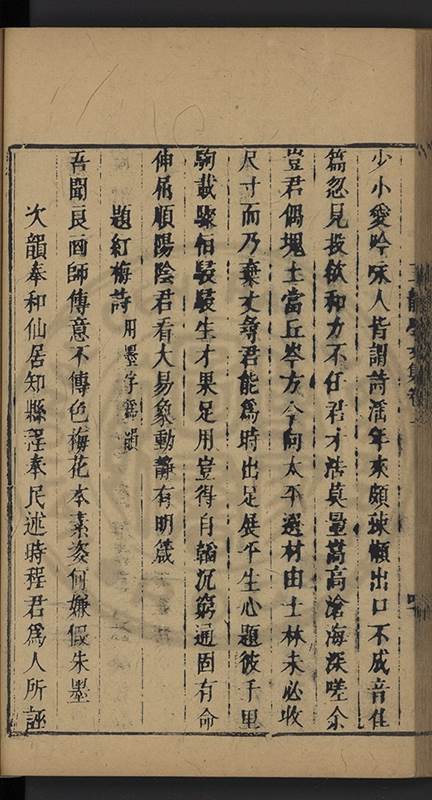 少小愛吟咏人皆謂詩滛年來頗踈懶出口不成音佳
篇忽見投欲和力不任君才浩莫量嵩高滄海深嗟余
豈君偶塊土當丘岑方今向太平選材由士林未必收
尺寸而乃棄丈尋君能為時出足展平生心題彼千里
駒載驟怕駸駸生才果足用豈得自韜沉窮通固有命
伸屈順陽陰君看大易象動靜有明箴
題紅梅詩用墨字爲韻
吾聞良画師傳意不傳色梅花本素姿何嫌假朱墨
次韻奉和仙居知縣 奉民述時程君為人所誣